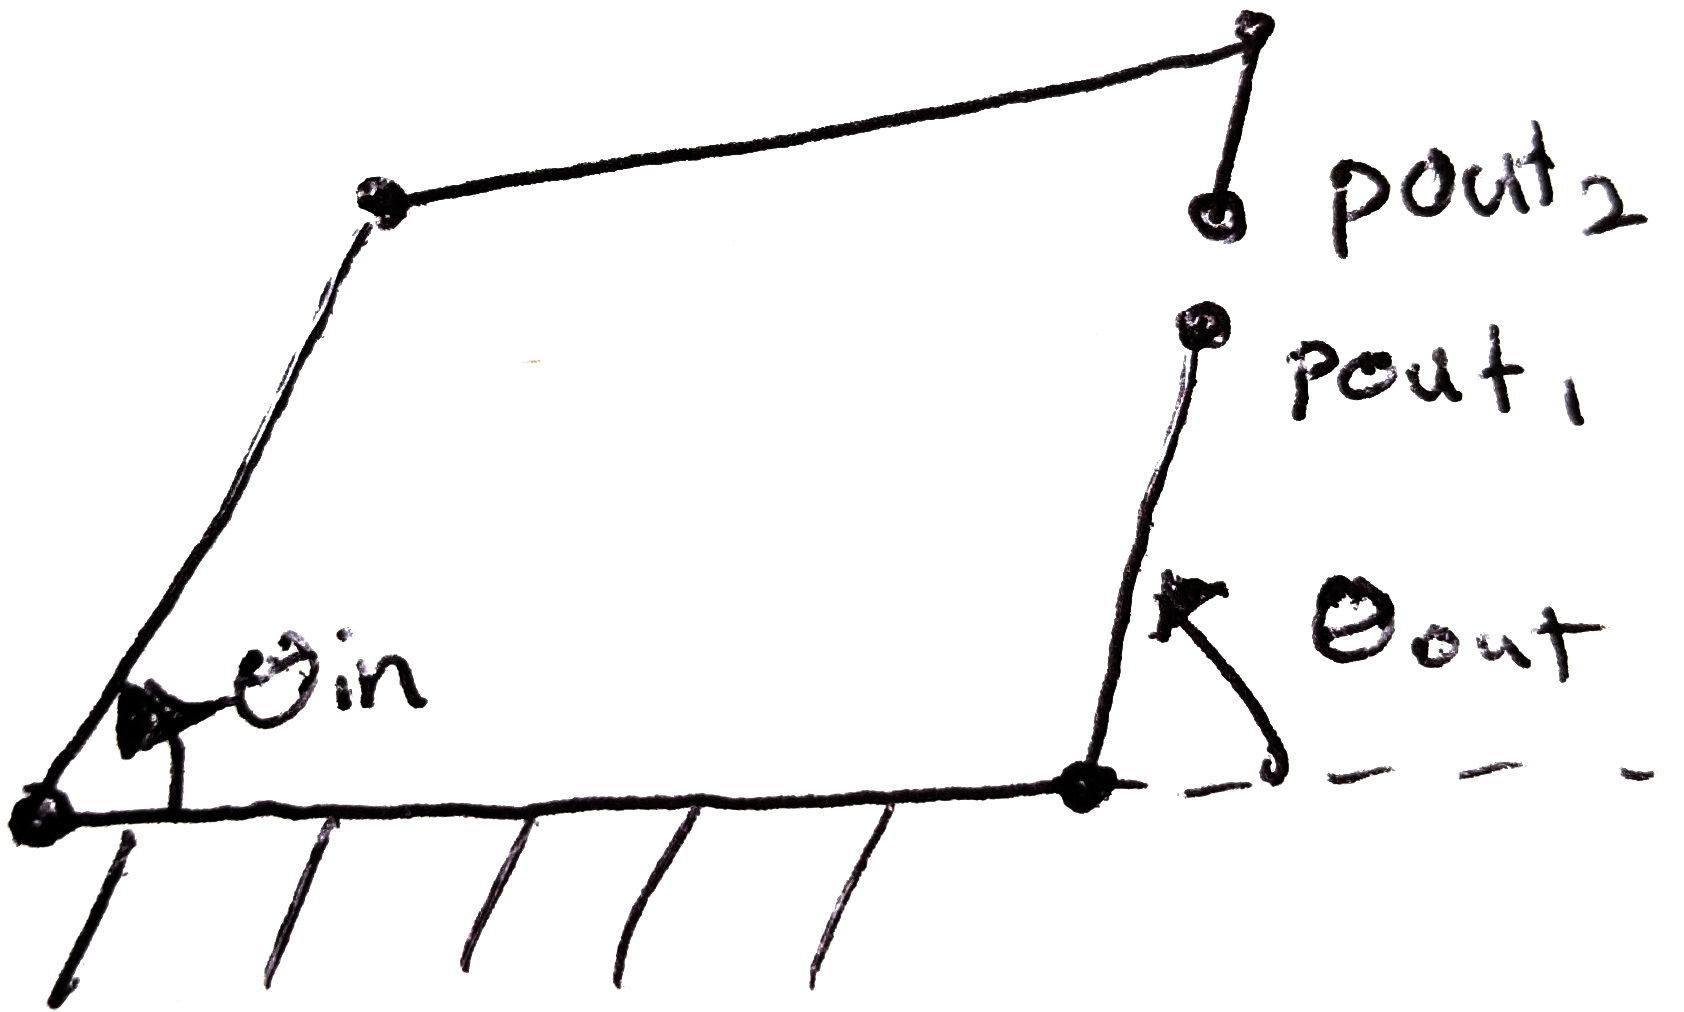 pout₂
pout₁
θout
θin